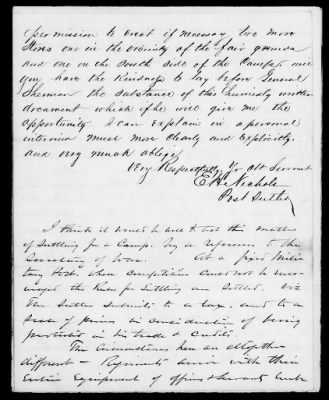 permission to erect if necessary two more
Stores one in the vicinity of the fair grounds
and one on the South side of the Camps, will
you have the kindness to lay before General
Sherman the substance of this hurriedly written
document which if he will give me the
opportunity I can explain in a personal
interview much more clearly and Explicitly.
and very much oblige
Very Respectfully Yr Obt Servant
E. H. Nichols
Post Sutler
I think it would be well to let this matter
of Suttling for a Camp. By a reference to the
Secretary of War. At a fixed Mili
tary Post, when competition could not be
the Rules for Suttling are settled. viz
The Sutler Submits to a tax, and to a
of prices in consideration of being
protected in his trade & credits
The Circumstances here are altogether
different — Regiments arrive with their
Entire Equipment of officers & Servants